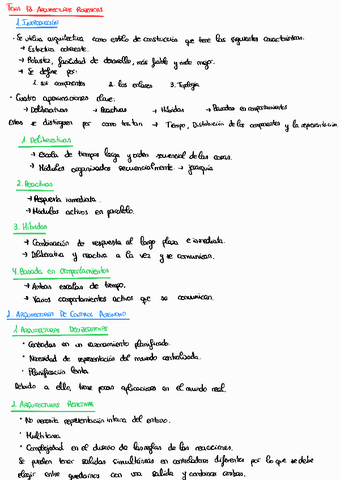 TEMA 13. ARQUITECTURAS ROBÓTICAS
1. INTRODUCCIÓN
• Se utiliza arquitectura como estilo de construcción que tiene las siguientes características.
→ Estructura coherente.
→ Robustez, facilidad de desarrollo, más fiable y mucho mejor.
→ Se define por:
1. sus componentes 2. los enlaces 3. Tipología
• Cuatro aproximaciones clave:
→ Deliberativas → Reactivas → Híbridas → Basadas en comportamientos
Estas se distinguen por como tratan → Tiempo, Distribución de los componentes y la representación.
1. Deliberativas
→ Escala de tiempos larga y orden secuencial de las cosas.
→ Módulos organizados secuencialmente → jerarquía
2. Reactivas
→ Respuesta inmediata.
→ Módulos activos en paralelo.
3. Híbridas
→ Combinación de respuesta al largo plazo e inmediata.
→ Deliberativa y reactiva a la vez y se comunican.
4. Basada en comportamientos
→ Ambas escalas de tiempo.
→ Varios comportamientos activos que se comunican.
2. ARQUITECTURAS DE CONTROL AUTÓNOMO
1. ARQUITECTURAS DELIBERATIVAS
• Centradas en un razonamiento planificado.
• Necesidad de representación del mundo centralizada.
• Planificación lenta.
Debido a ello, tiene pocas aplicaciones en el mundo real.
2. ARQUITECTURAS REACTIVAS
• No necesita representación interna del entorno.
• Multitarea
• Complejidad en el diseño de las reglas de las reacciones.
Se pueden tener salidas simultáneas en controladores diferentes por lo que se debe
elegir entre quedarnos con una salida y combinar ambas.